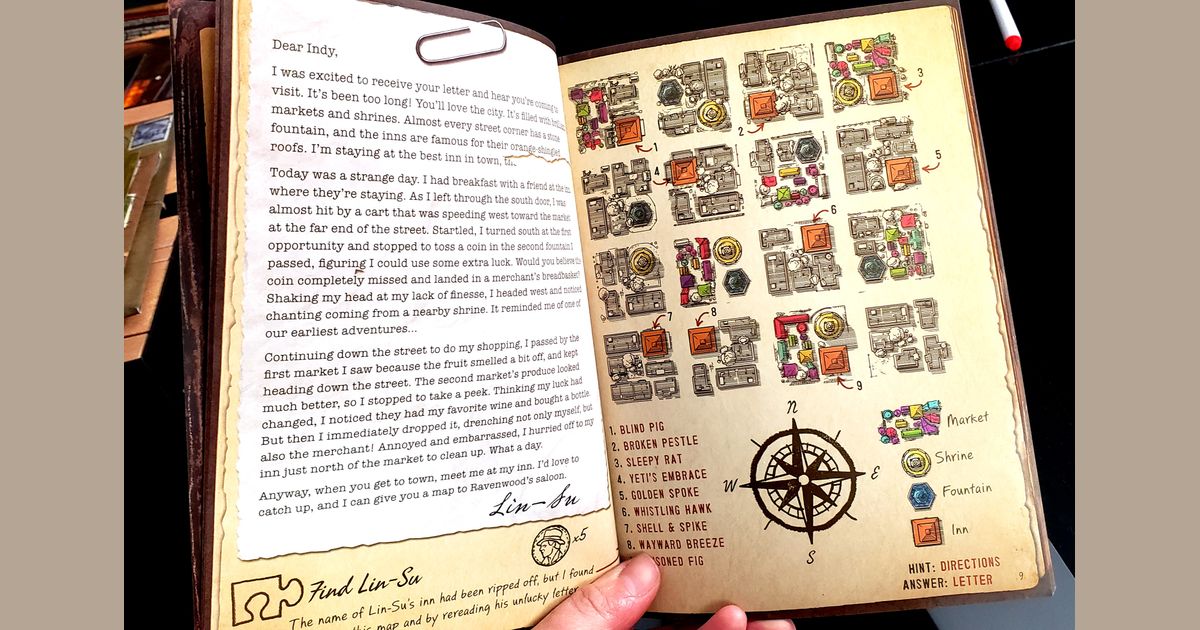 Dear Indy,
I was excited to receive your letter and hear you're coming to
visit. It's been too long! You'll love the city. It's filled with
markets and shrines. Almost every street corner has a stone
fountain, and the inns are famous for their orange-shingled
roofs. I'm staying at the best inn in town,
Today was a strange day. I had breakfast with a friend at the inn
where they're staying. As I left through the south door, I was
almost hit by a cart that was speeding west toward the market
at the far end of the street. Startled, I turned south at the first
opportunity and stopped to toss a coin in the second fountain I
passed, figuring I could use some extra luck. Would you believe the
coin completely missed and landed in a merchant's breadbasket?
Shaking my head at my lack of finesse, I headed west and noticed
chanting coming from a nearby shrine. It reminded me of one of
our earliest adventures...
Continuing down the street to do my shopping, I passed by the
first market I saw because the fruit smelled a bit off, and kept
heading down the street. The second market's produce looked
much better, so I stopped to take a peek. Thinking my luck had
changed, I noticed they had my favorite wine and bought a bottle.
But then I immediately dropped it, drenching not only myself, but
also the merchant! Annoyed and embarrassed, I hurried off to my
inn just north of the market to clean up. What a day.
Anyway, when you get to town, meet me at my inn. I'd love to
catch up, and I can give you a map to Ravenwood's saloon.
Lin-Su
x5
Find Lin-Su
The name of Lin-Su's inn had been ripped off, but I found
this map and by rereading his unlucky letter
1
2
3
4
5
6
7
8
9
1. BLIND PIG
2. BROKEN PESTLE
3. SLEEPY RAT
4. YETI'S EMBRACE
5. GOLDEN SPOKE
6. WHISTLING HAWK
7. SHELL & SPIKE
8. WAYWARD BREEZE
FIG
N
W
E
S
Market
Shrine
Fountain
Inn
HINT: DIRECTIONS
ANSWER: LETTER
9